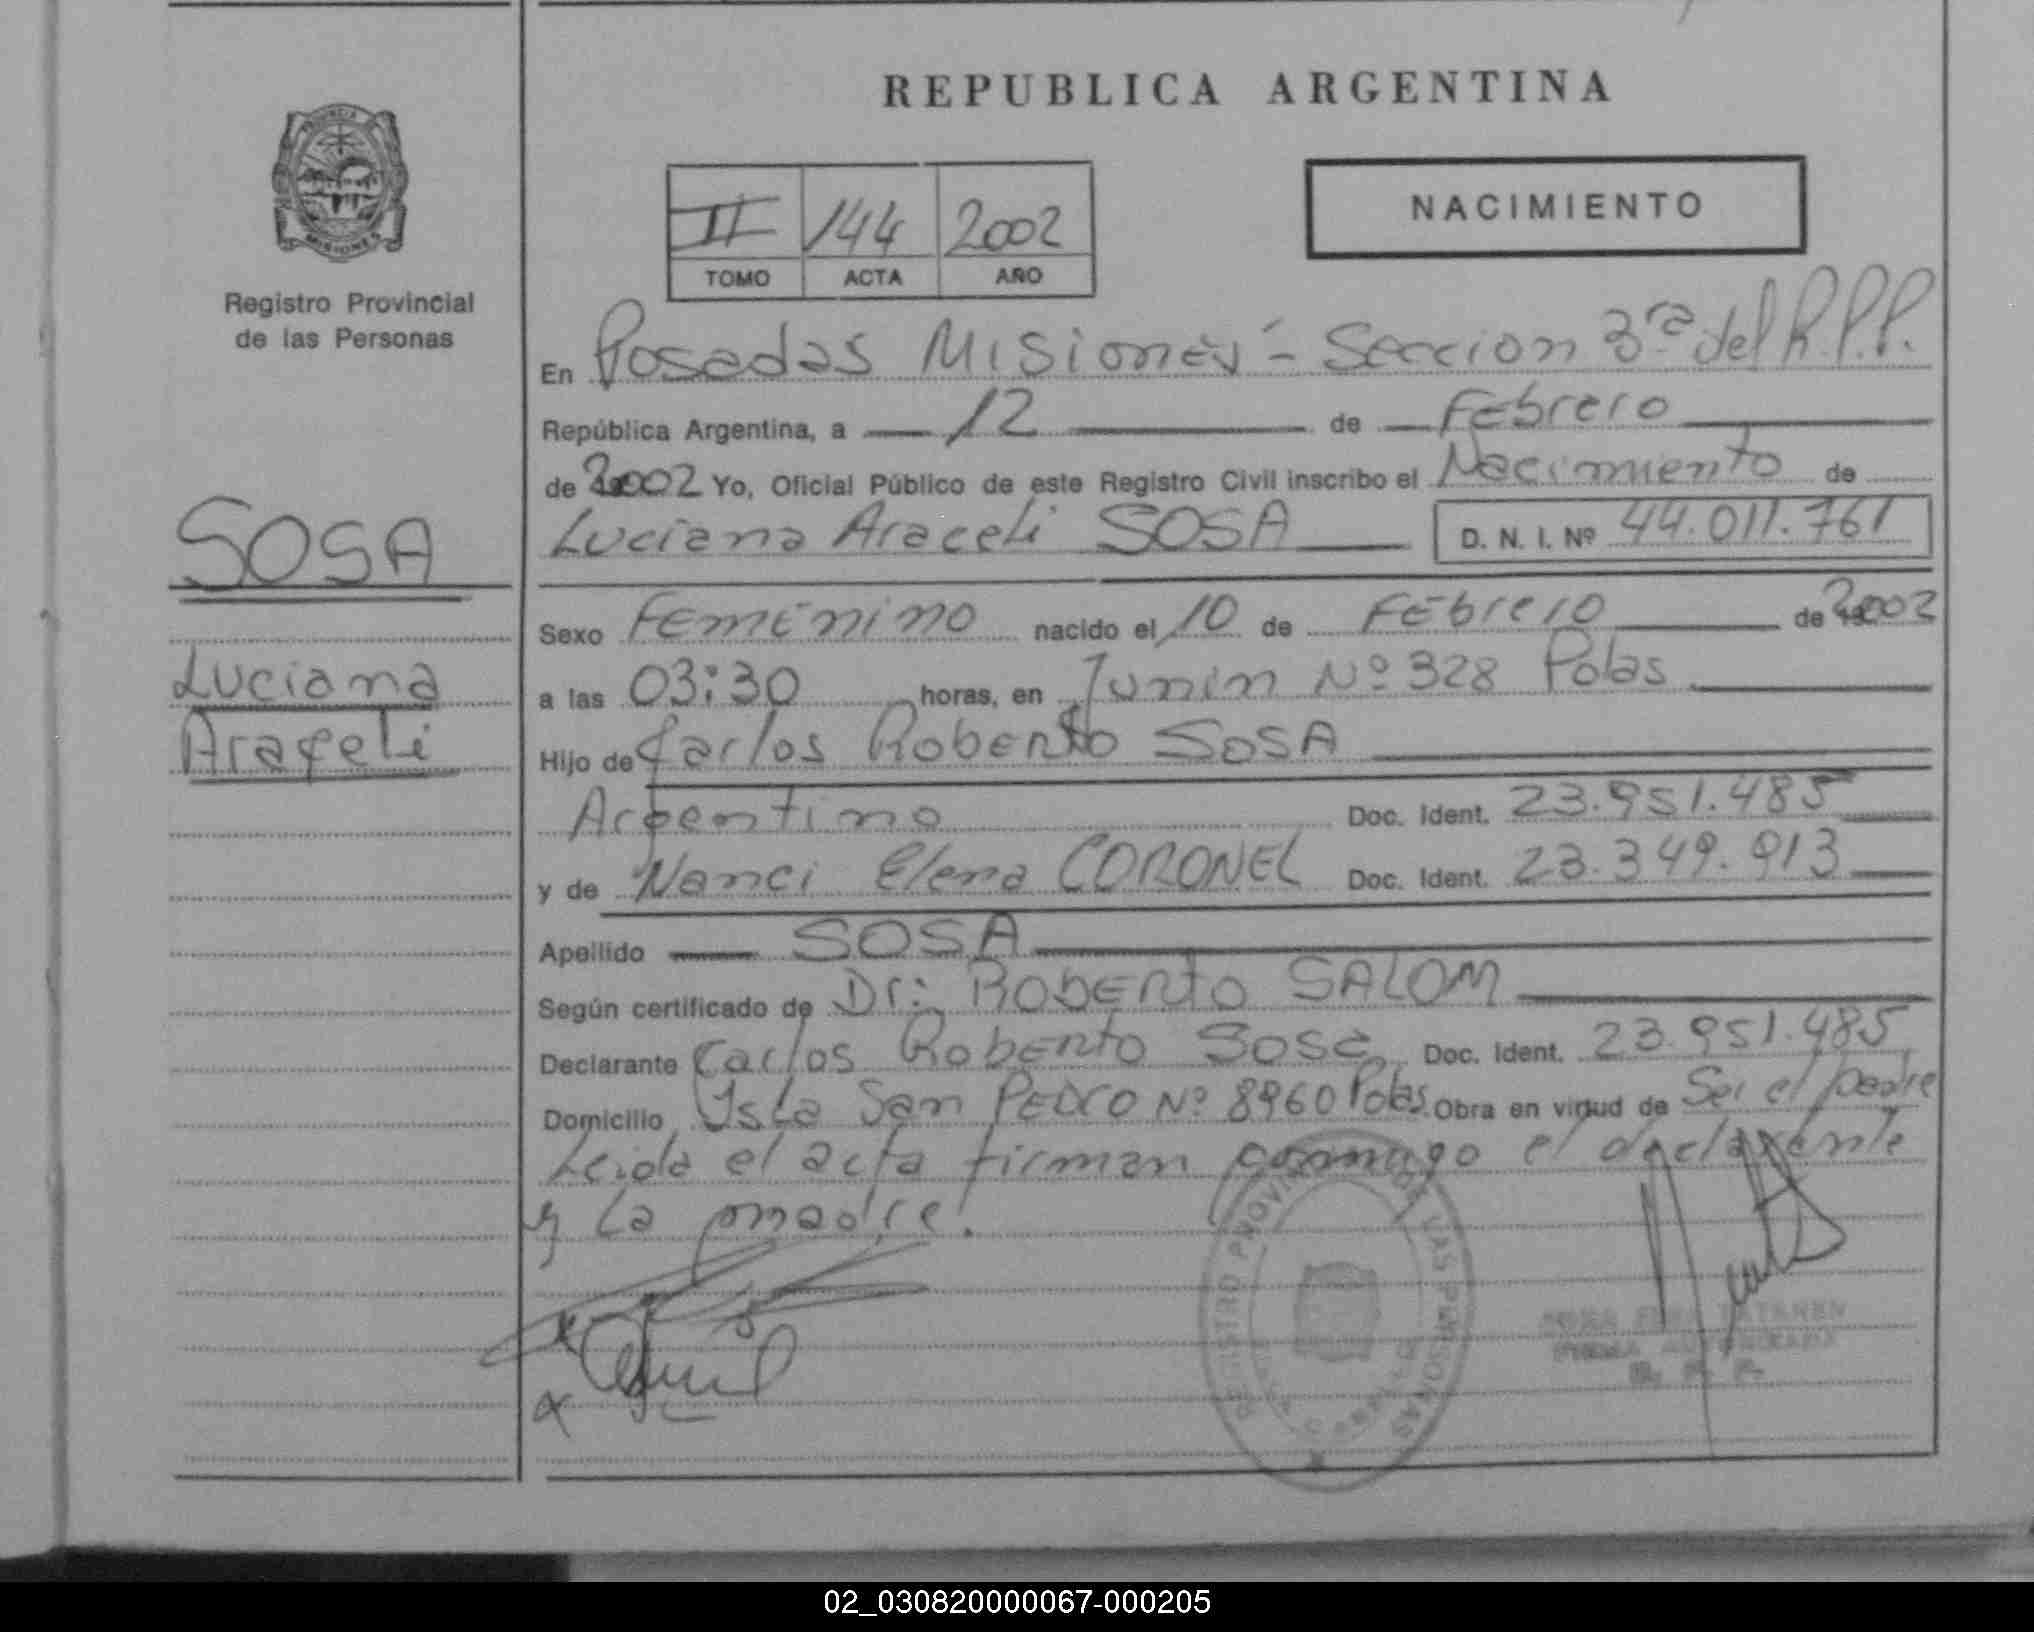 REPUBLICA ARGENTINA
PROVINCIA DE
MISIONES
Registro Provincial
de las Personas
NACIMIENTO
II 144 2002
TOMO ACTA AÑO
En Posadas Misiones - Seccion 3ra del R.P.P.
República Argentina, a 12 de Febrero
de 2002 Yo, Oficial Público de este Registro Civil inscribo el Nacimiento de
Luciana Araceli SOSA D. N. I. Nº 44.011.761
SOSA
Luciana
Araceli
Sexo Femenino nacido el 10 de Febrero de 2002
a las 03:30 horas, en Junin Nº 328 Pdas
Hijo de Carlos Roberto SOSA
Argentino Doc. Ident. 23.951.485
y de Nanci Elena CORONEL Doc. Ident. 23.349.913
Apellido SOSA
Según certificado de Dr: Roberto SALOM
Declarante Carlos Roberto Sosa Doc. Ident. 23.951.485
Domicilio Isla San Pedro Nº 8960 Pdas. Obra en virtud de Ser el padre
Leida el acta firman conmigo el declarante
y la madre.
REGISTRO PROVINCIAL DE LAS PERSONAS
FIRMA AUTORIZADA
R. P. P.
02_030820000067-000205